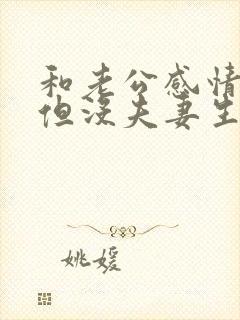 和老公感情
但没夫妻生
姚媛